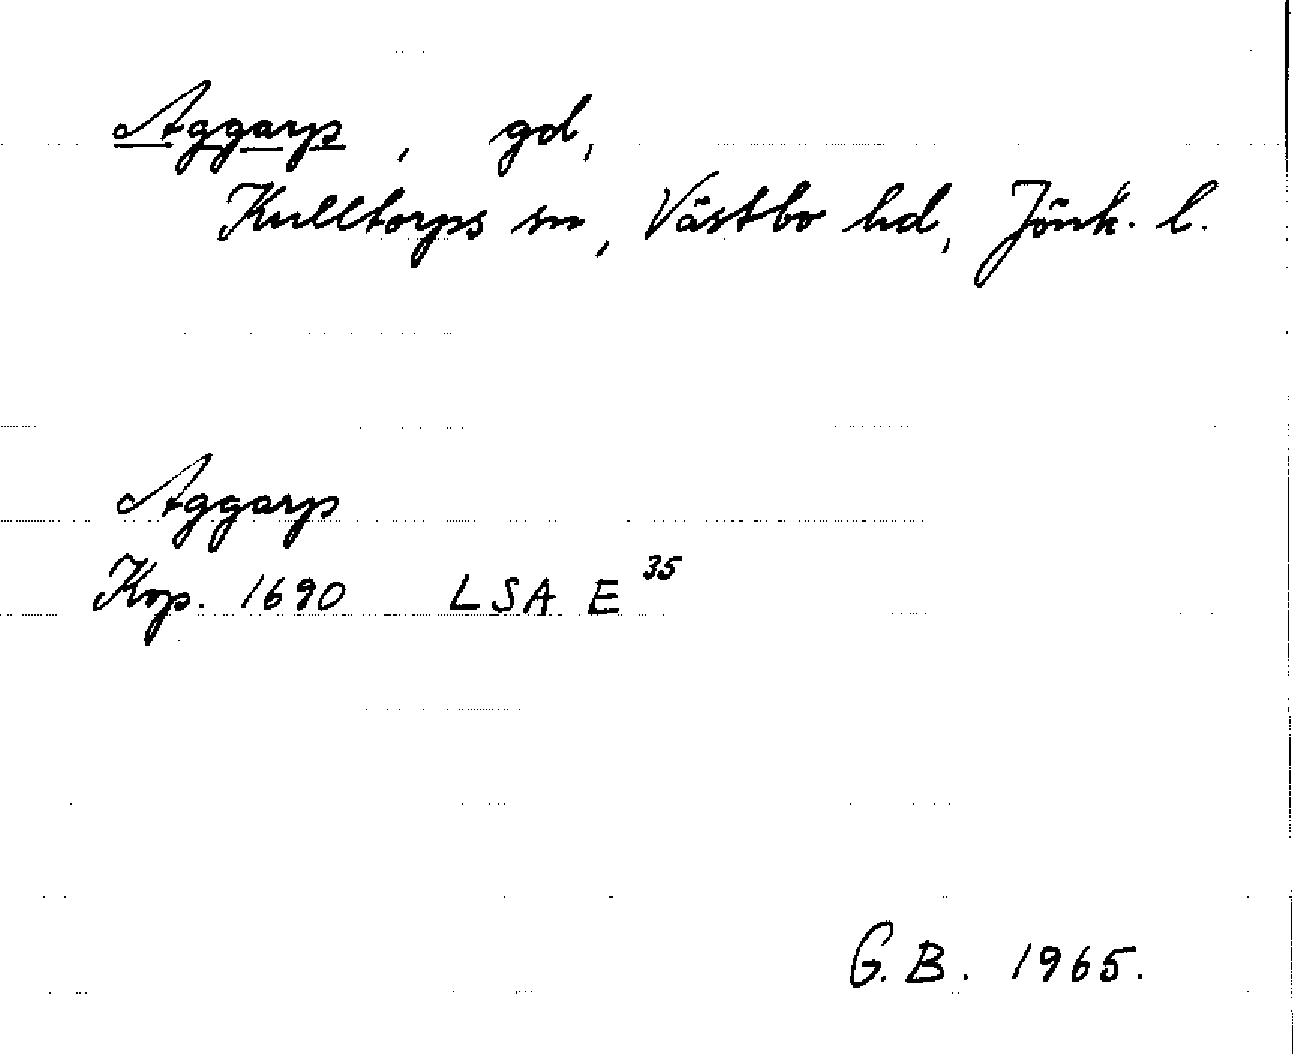 Aggarp, gd,
Kulltorps sn, Västbo hd, Jönk. l.
Aggarp
Kop. 1690 LSA E 35
G. B. 1965.